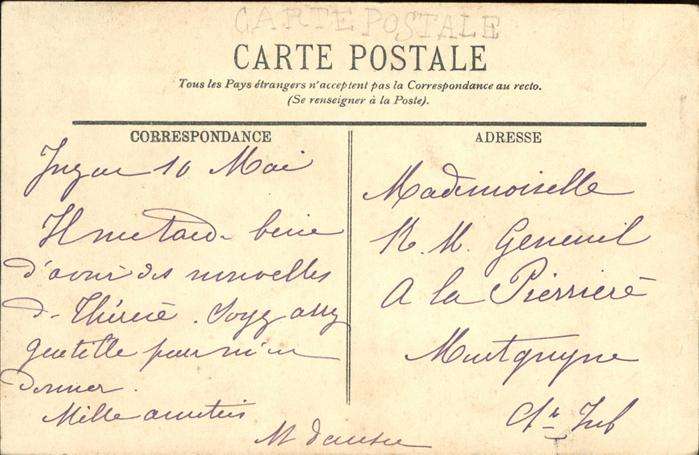 CARTE POSTALE
CARTE POSTALE
Tous les Pays étrangers n'acceptent pas la Correspondance au recto.
(Se renseigner à la Poste).
CORRESPONDANCE
10 Mai
Il me tarde bien
d'avoir des nouvelles
de Thérèse. Soyez assez
gentille pour m'en
donner.
Mille amitiés
M
ADRESSE
Mademoiselle
M. Geneuil
A la Pierrière
Montguyon
Cte Inf